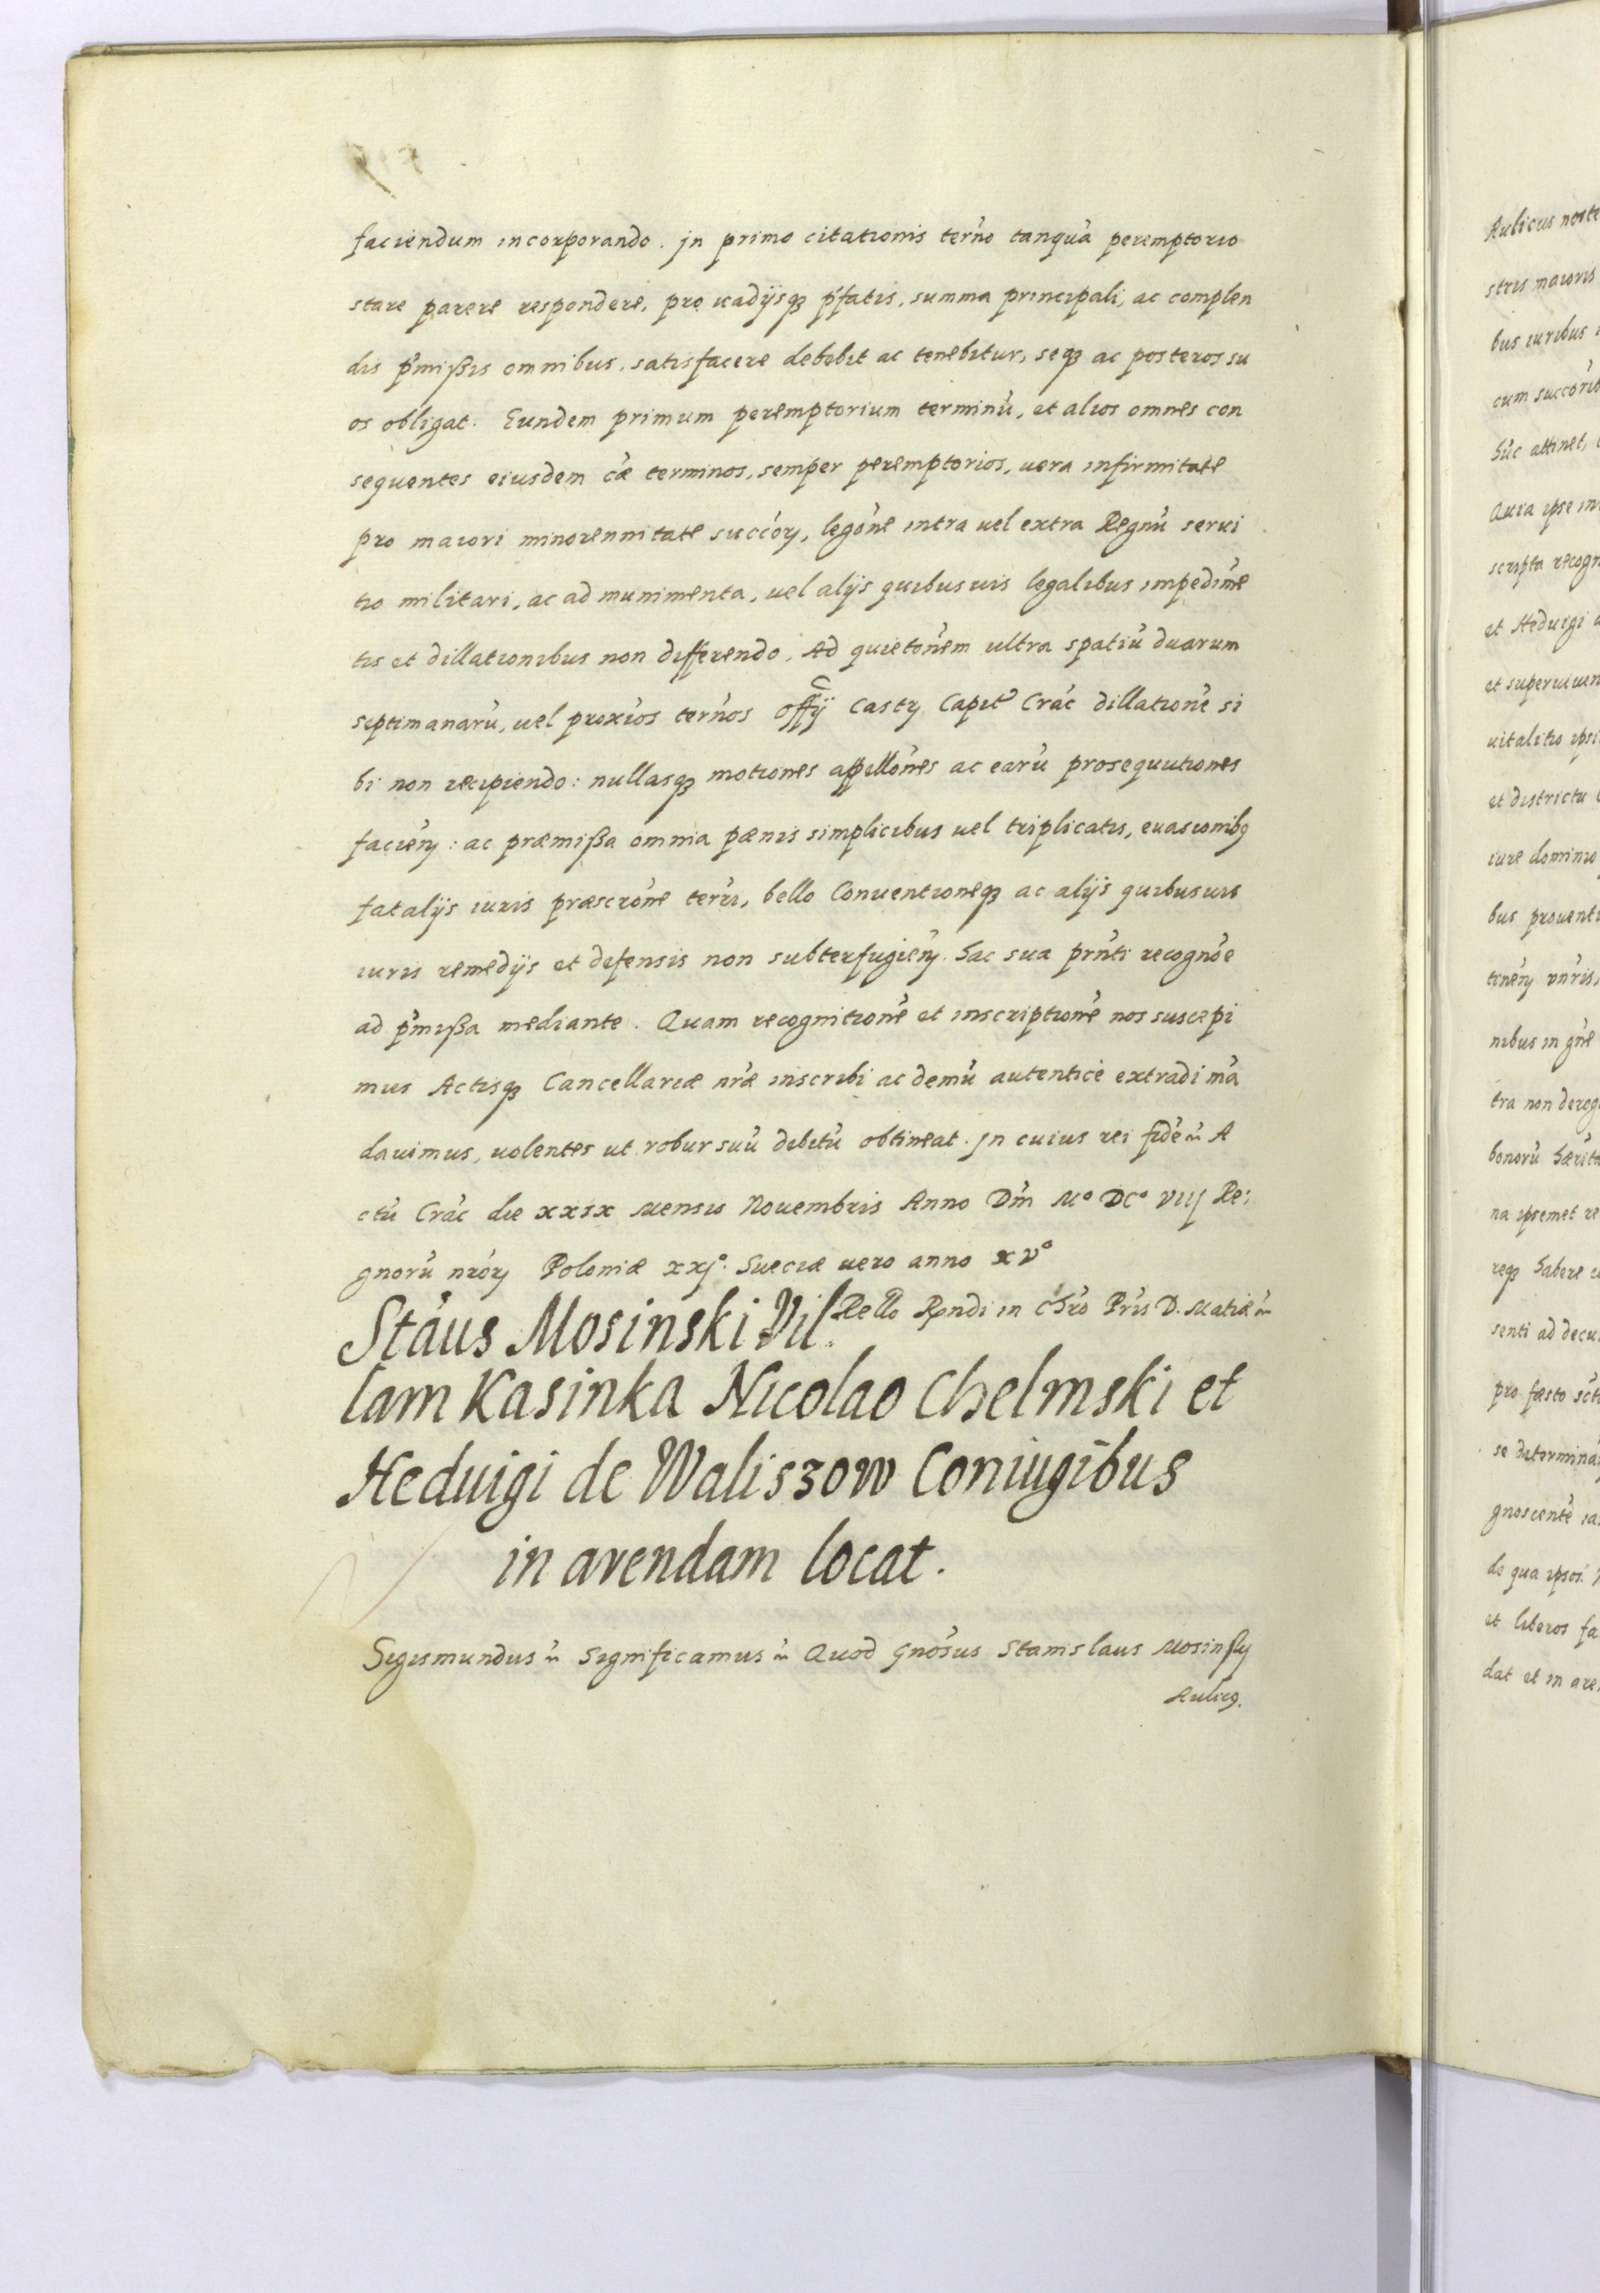 faciendum incorporando. jn primo citationis terno tanquā peremptorio
stare parere respondere, pro vadijsqz pfatis, summa principali, ac complen
dis pmißis omnibus, satisfacere debebit ac tenebitur, seqz ac posteros su
os obligat. Eundem primum peremptorium terminū, et alios omnes con
sequentes eiusdem cāe terminos, semper peremptorios, uera infirmitate
pro maiori minorennitate succōrz, legōne intra uel extra Regnū serui
tio militari, ac ad munimenta, uel alijs quibusuis legalibus impedimē
tis et dillationibus non differendo. Ad quietōnem ultra spatiū duarum
septimanarū, uel proxīos ternos offĳ Castrz Capitᵉ Crāc dillationē si
bi non recipiendo: nullasqz motiones appellōnes ac earū prosequutiones
faciēn: ac præmißa omnia pænis simplicibus uel triplicatis, euasionibꝯ
fatalijs iuris præscrōne terri, bello Conuentioneqz ac alijs quibusuis
iuris remedijs et defensis non subterfugiēn. hac sua prnti recognōe
ad pmißa mediante. Quam recognitionē et inscriptionē nos suscepi
mus Actisqz Cancellariæ nræ inscribi ac demū autenticè extradi mā
dauimus, uolentes ut robur suū debitū obtineat. jn cuius rei fidē ṁ A
ctū Crāc die xxix Mensis Nouembris Anno Dm̄ Mº DCº viij Re:
gnorū nrōrz Poloniæ xxjº. Sueciæ uero anno xvº
Rello Rendi in Chrō Pris D. Matiæ ṁ
Stāus Mosinski Vil
lam Kasinka Nicolao Chelmski et
Heduigi de Waliszow Coniugibus
in arendam locat.
Sigismundus ṁ Significamus ṁ Quod Gnōsus Stanislaus Mosinsky
Aulicꝯ.
Aulicus
maioris
bus iuribus
cum
attinet,
Quia ipse
scripta
et Heduigi
et
uitalitio ipsi
et districtu
iure dominio
bus
nibus in gnē
tra non
bonorū
na ipsemet
reqz habere
senti ad
pro fæsto
se
gnoscentē
de qua ipsos
et liberos
dat et in